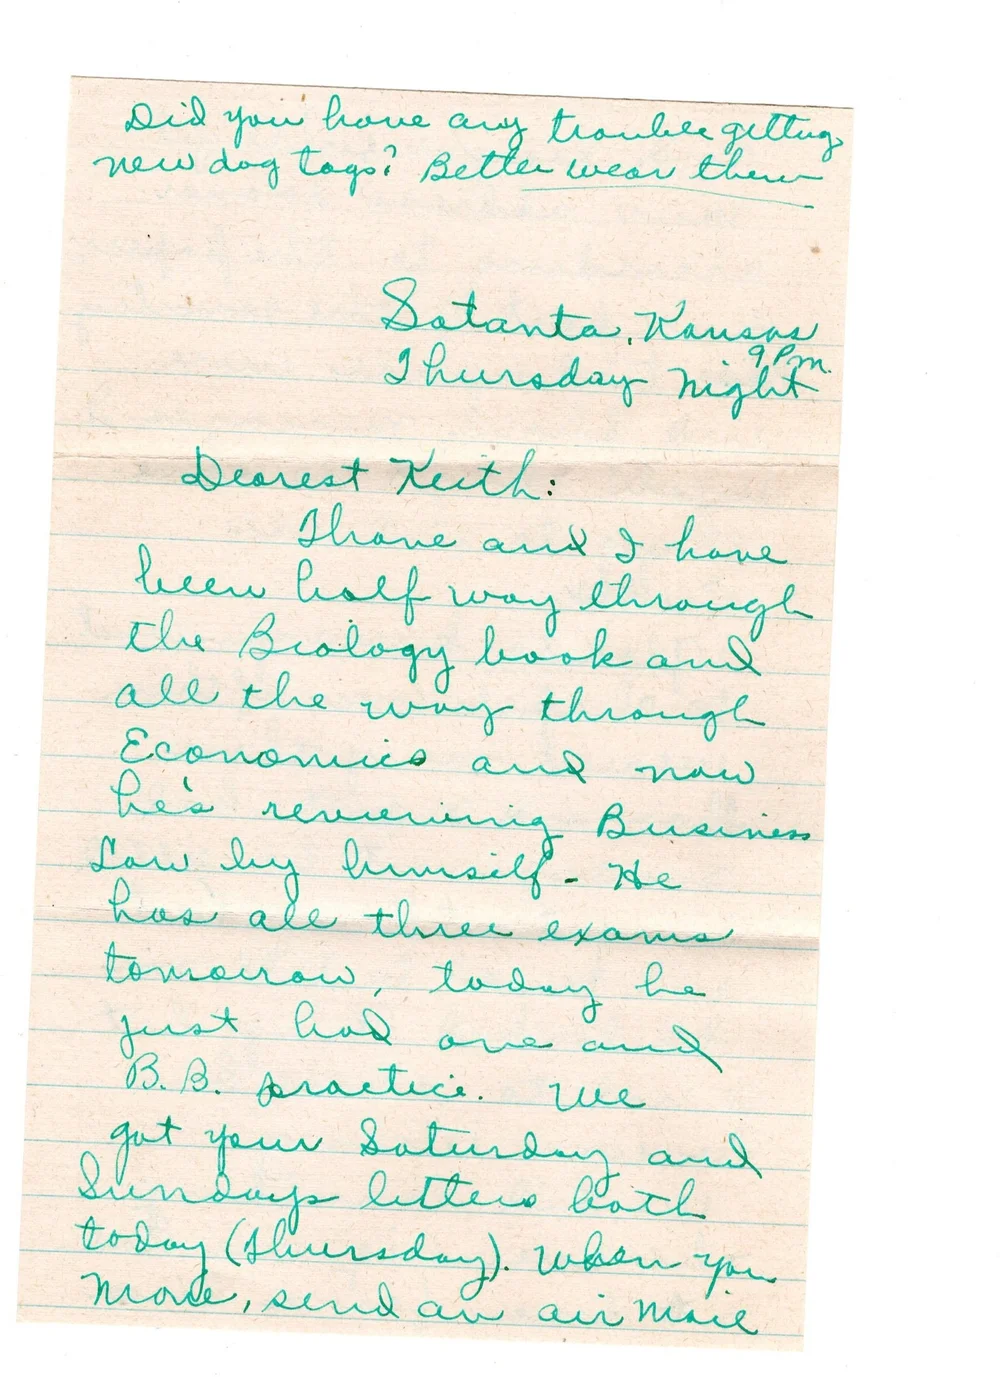 Did you have any trouble getting
new dog tags? Better wear them
Satanta, Kansas
9 P.m.
Thursday Night
Dearest Keith:
Thane and I have
been half way through
the Biology book and
all the way through
Economics and now
he's reviewing Business
Law by himself - He
has all three exams
tomorrow, today he
just had one and
B.B. practice. We
got your Saturday and
Sundays letters both
today (Thursday). When you
move, send an air mail